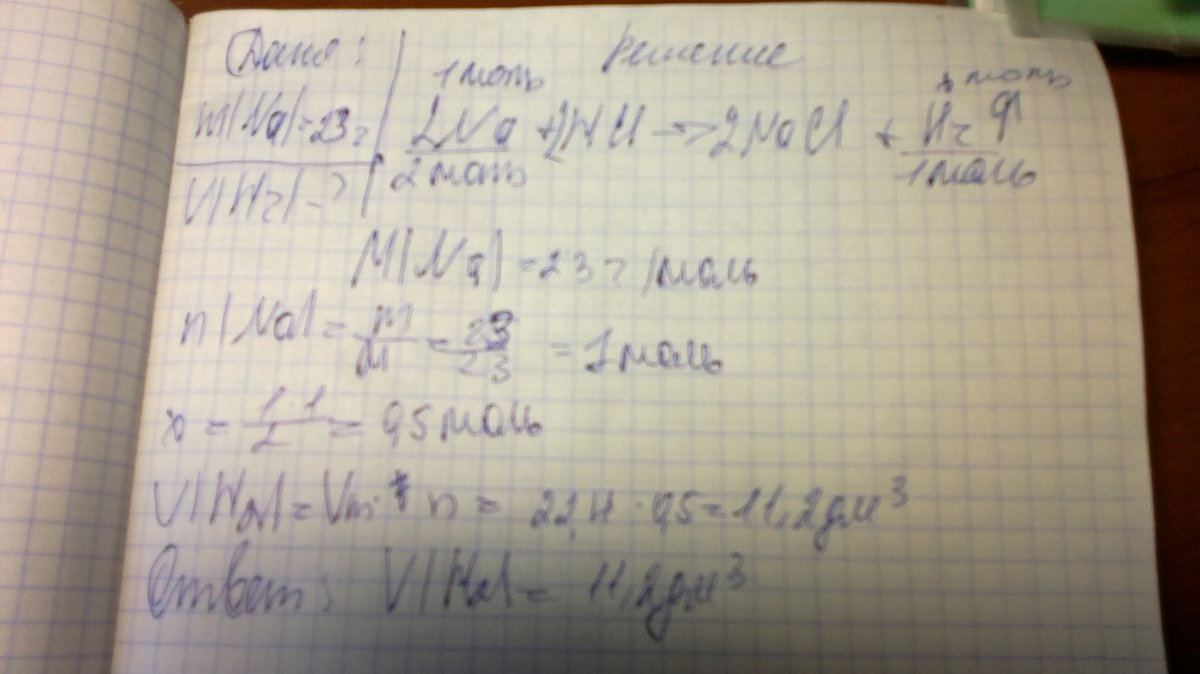 Дано: Решение
1 моль x моль
m(Na)=23г 2Na + 2HCl → 2NaCl + H₂↑
V(H₂)-? 2 моль 1 моль
M(Na) = 23 г/моль
n(Na) = m/M = 23/23 = 1 моль
x = 1·1/2 = 0,5 моль
V(H₂) = Vm · n = 22,4 · 0,5 = 11,2 дм³
Ответ: V(H₂) = 11,2 дм³